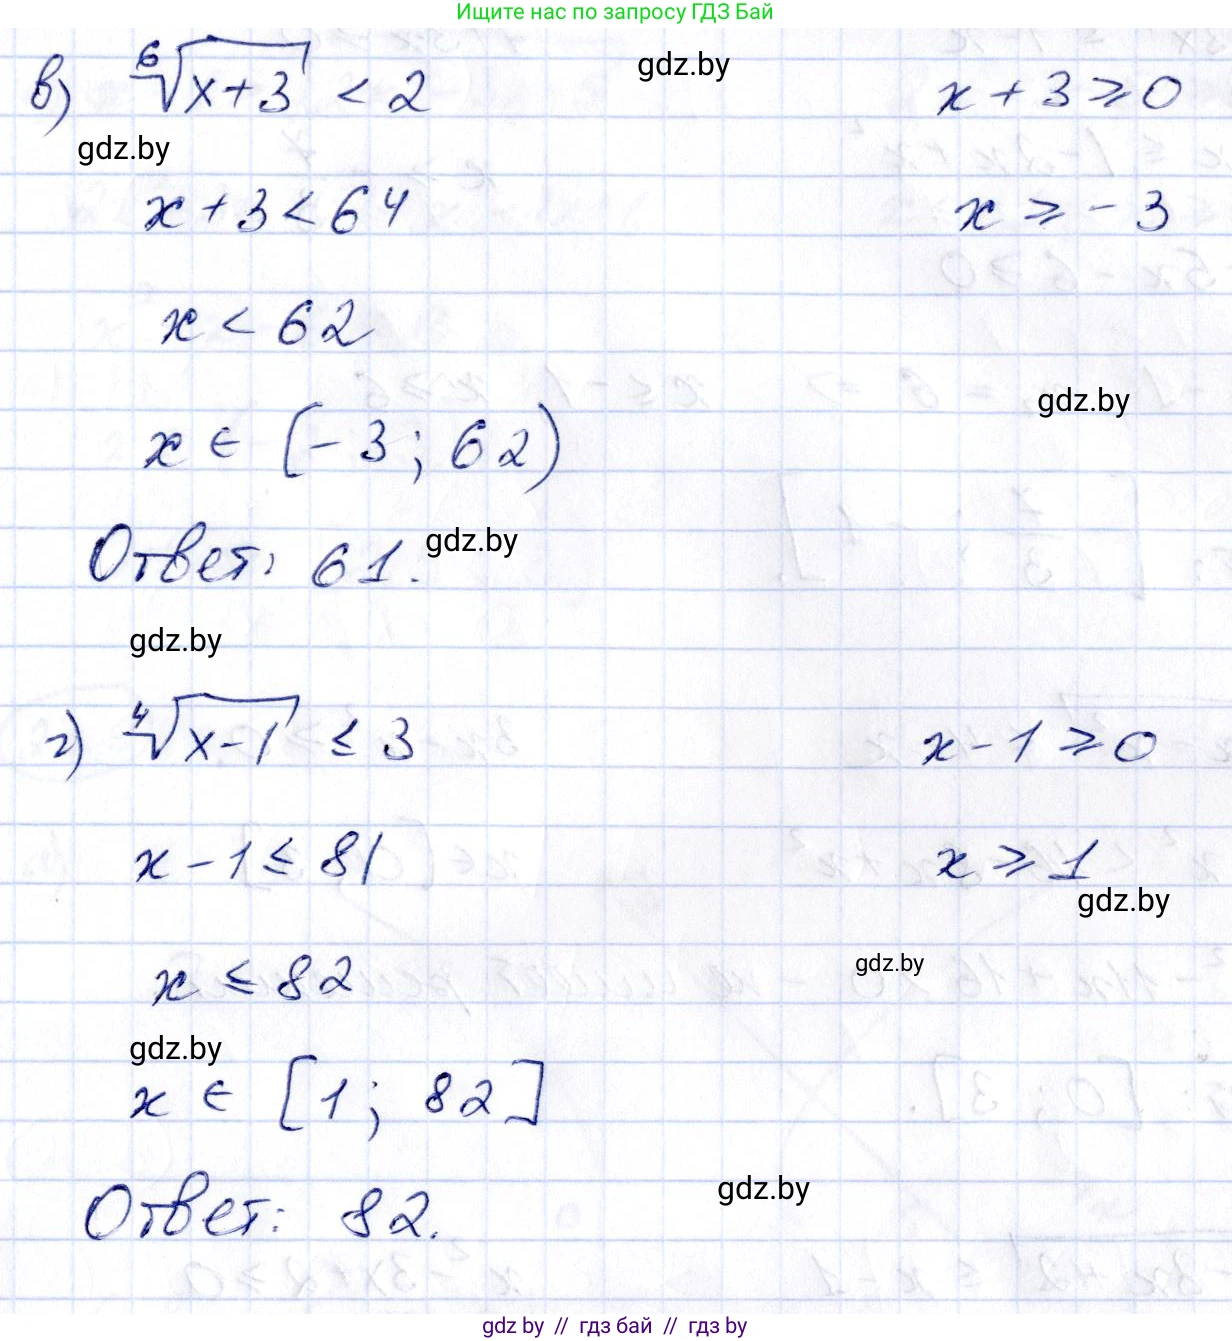 Ищите нас по запросу ГДЗ Бай
в) ⁶√(x+3) < 2 x + 3 ⩾ 0
gdz.by
gdz.by
x + 3 < 64 x ⩾ - 3
x < 62
gdz.by
x ∈ [-3; 62)
Ответ: 61.
gdz.by
gdz.by
г) ⁴√(x-1) ≤ 3 x - 1 ⩾ 0
x - 1 ≤ 81 x ⩾ 1
gdz.by
x ≤ 82
gdz.by
gdz.by
x ∈ [1; 82]
Ответ: 82.
gdz.by
gdz by // гдз бай // gdz by